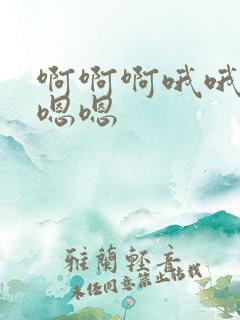 啊啊啊哦哦
嗯嗯
雅蘭轻音
未经同意禁止转载